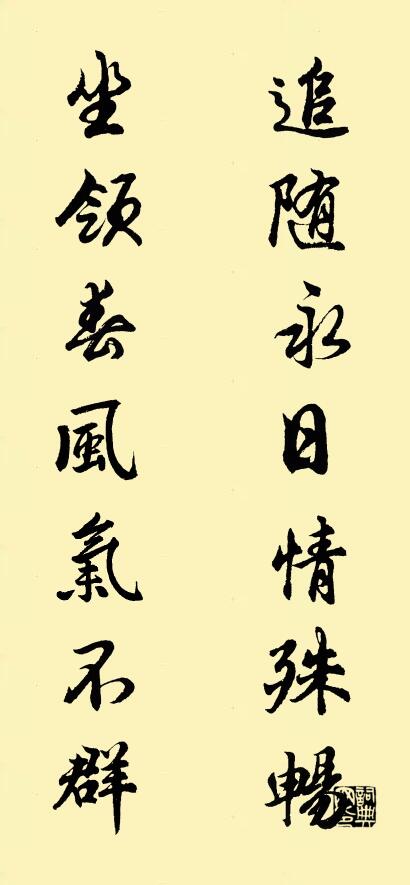 追随永日情殊暢
坐領春風氣不群
詞典